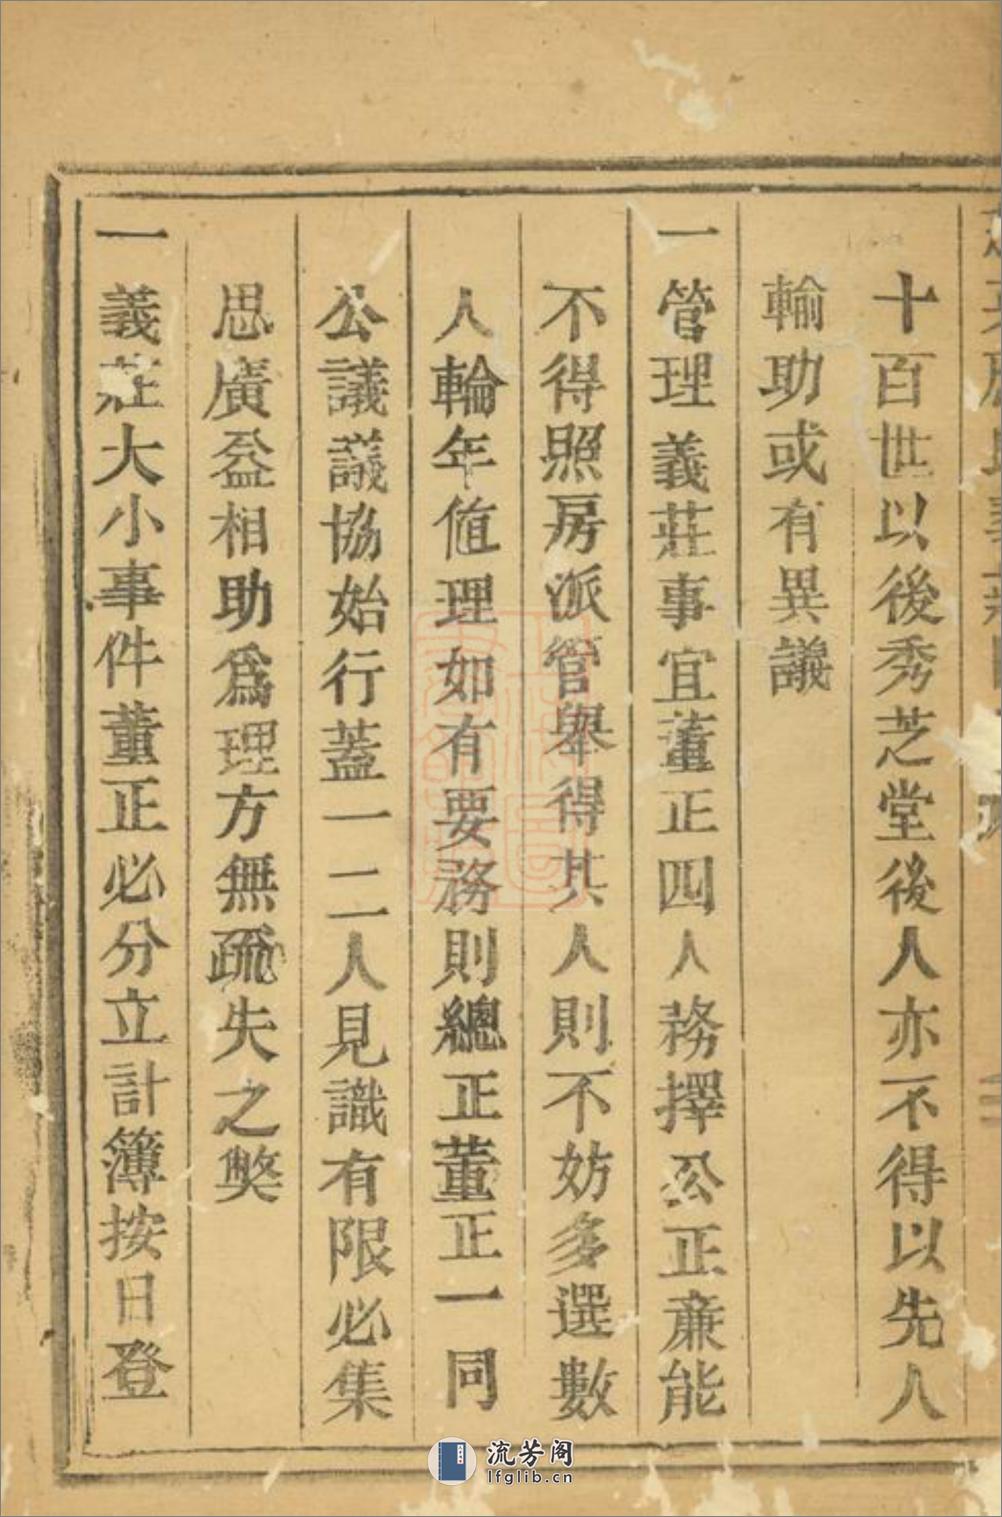 十百世以後秀芝堂後人亦不得以先人
輸助或有異議
一管理義莊事宜董正四人務擇公正亷能
不得照房派管舉得其人則不妨多選數
人輪年值理如有要務則總正董正一同
公議議協始行蓋一二人見識有限必集
思廣益相助爲理方無疏失之獘
一義莊大小事件董正必分立計簿按日登
流芳阁
lfglib.cn